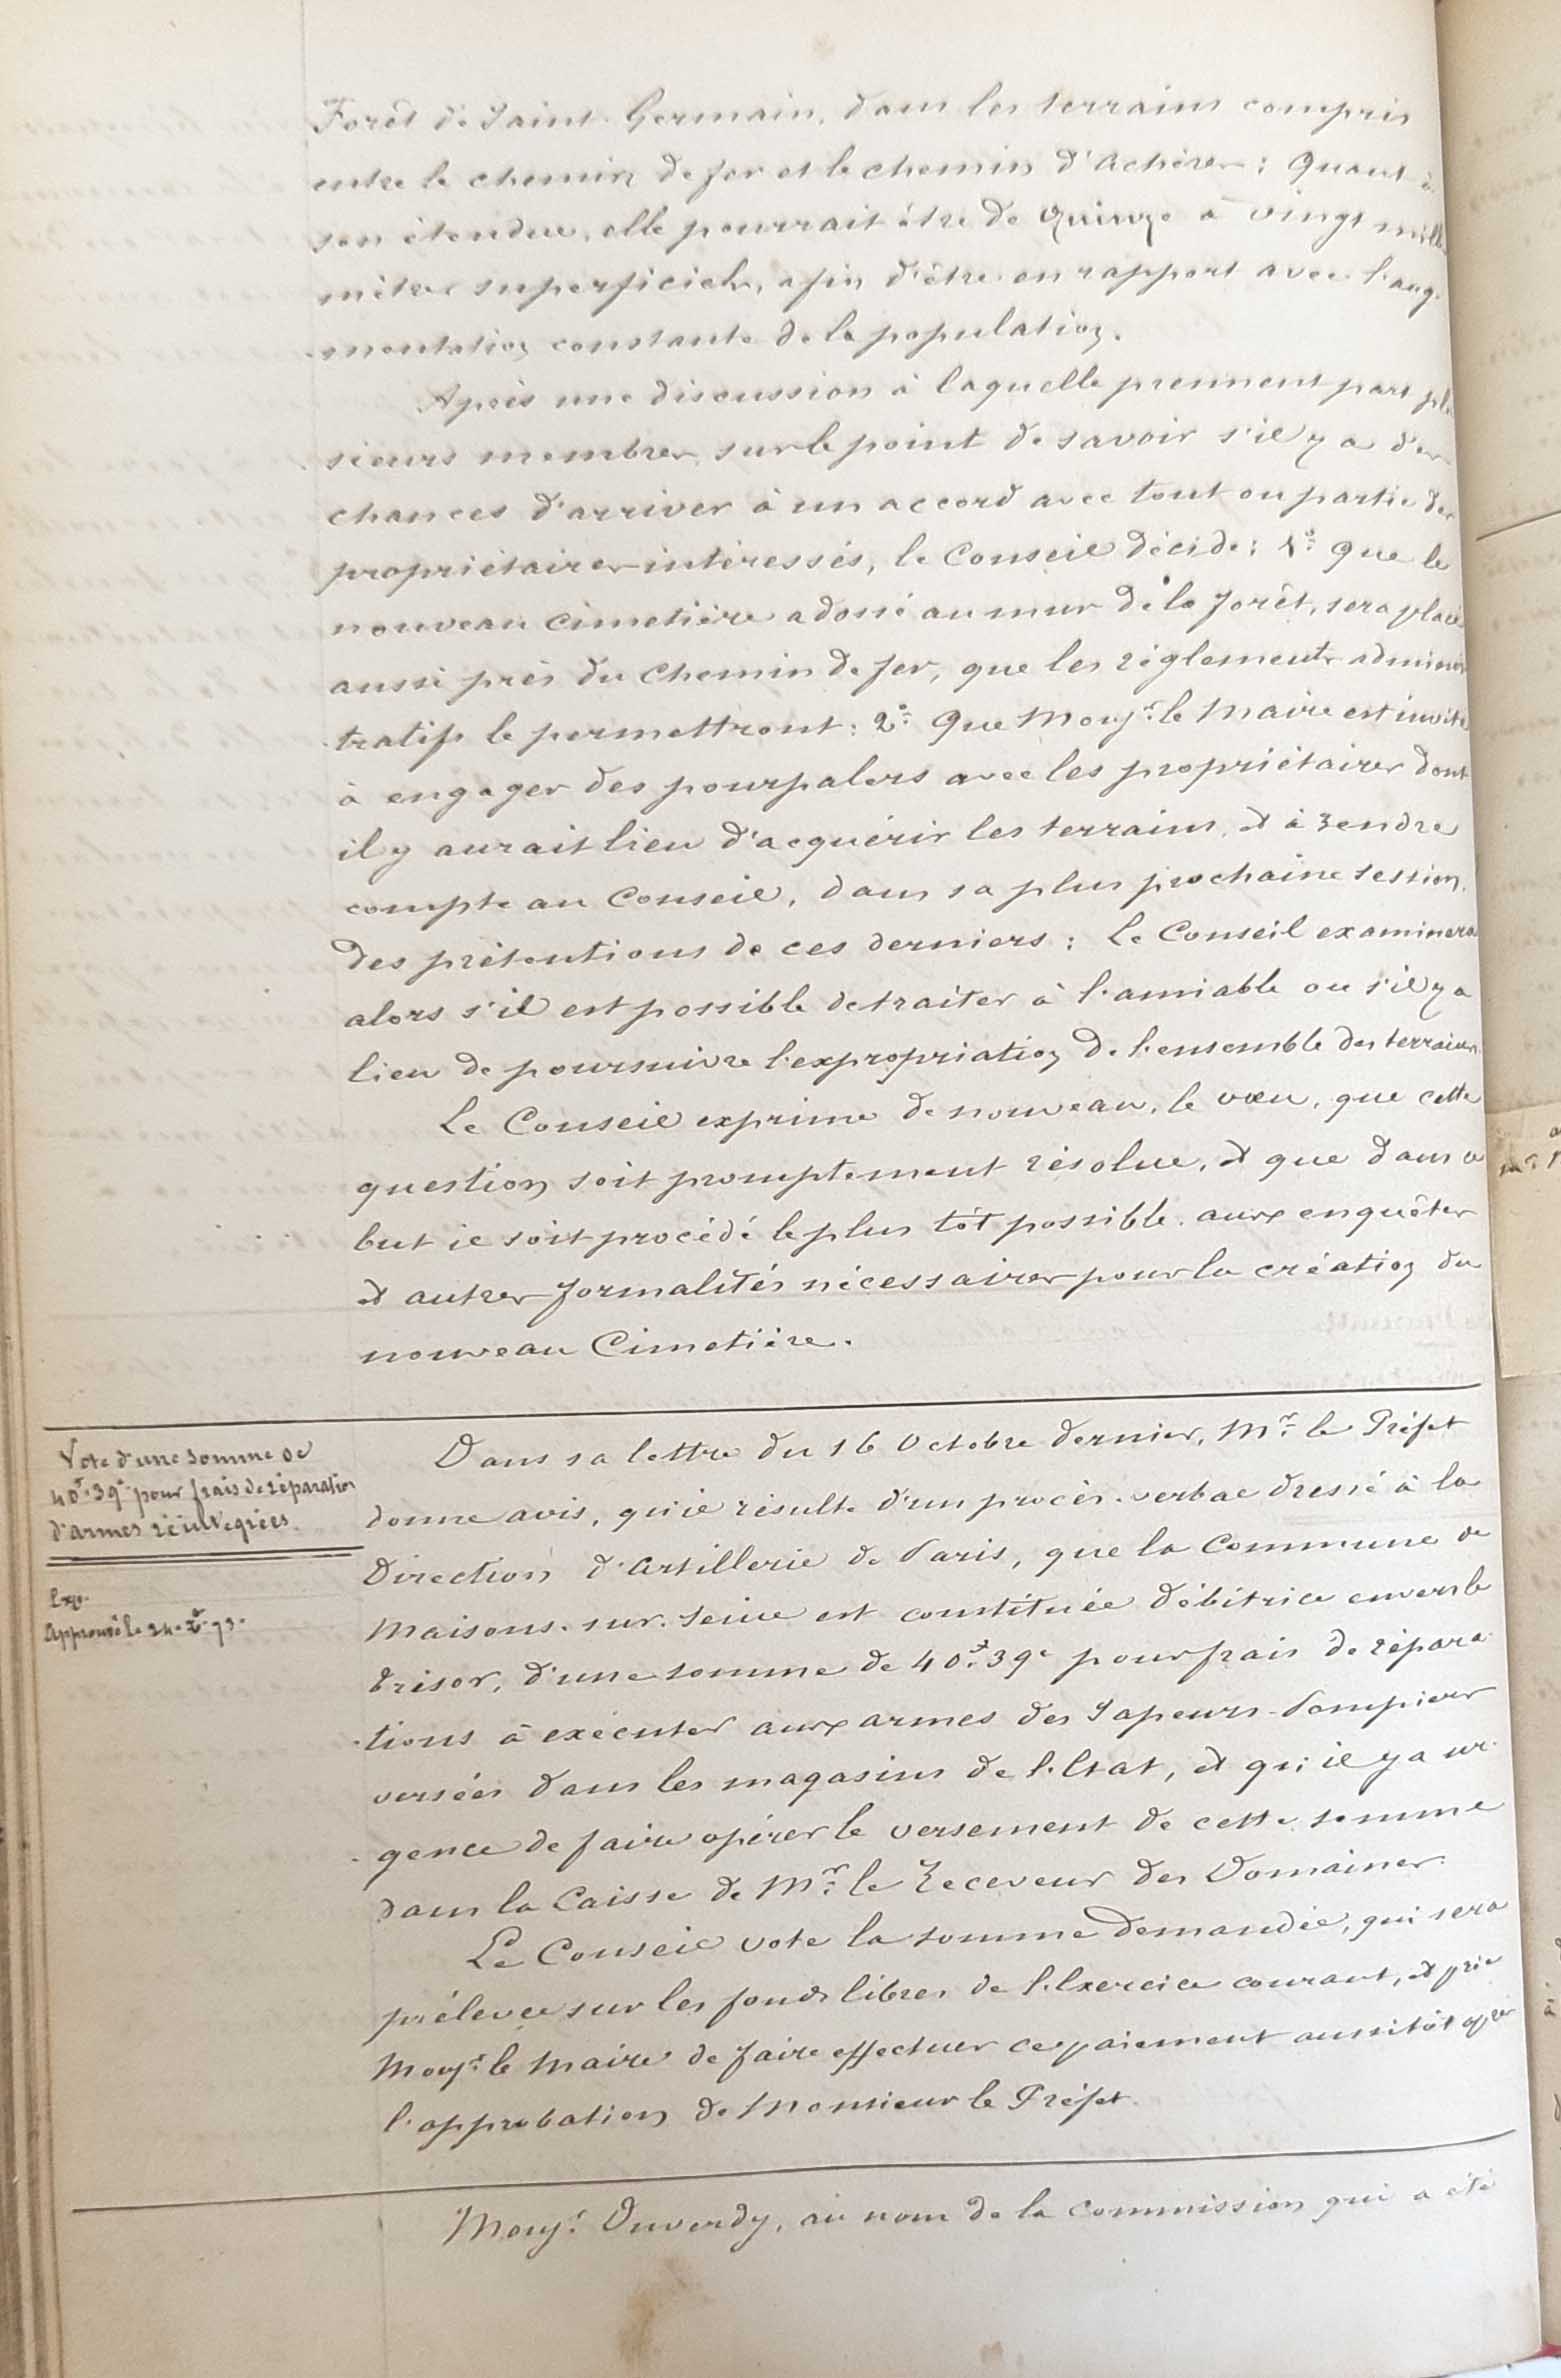 Forêt de Saint-Germain, dans les terrains compris
entre le chemin de fer et le chemin d'Achères; Quant à
son étendue, elle pourrait être de Quinze à vingt mille
mètres superficiels, afin d'être en rapport avec l'aug-
-mentation constante de la population.
Après une discussion à laquelle prennent part plu
sieurs membres, sur le point de savoir s'il y a des
chances d'arriver à un accord avec tout ou partie des
propriétaires intéressés, le Conseil décide: 1º: Que le
nouveau cimetière adossé au mur de la forêt, sera placé
aussi près du Chemin de fer, que les règlements adminis
-tratifs le permettront: 2º: Que Monsr. le Maire est invité
à engager des pourpalers avec les propriétaires dont
il y aurait lieu d'acquérir les terrains, et à rendre
compte au Conseil, dans sa plus prochaine session,
des prétentions de ces derniers: Le Conseil examinera
alors s'il est possible de traiter à l'amiable ou s'il y a
lieu de poursuivre l'expropriation de l'ensemble des terrains.
Le Conseil exprime de nouveau, le vœu, que cette
question soit promptement résolue, et que dans ce
but il soit procédé le plus tôt possible aux enquêtes
et autres formalités nécessaires pour la création du
nouveau Cimetière.
Vote d'une somme de
40f.39c. pour frais de réparation
d'armes réintégrées.
Exp.
Approuvé le 24 Xbre 73.
Dans sa lettre du 16 Octobre dernier, Mr. le Préfet
donne avis, qu'il résulte d'un procès-verbal dressé à la
Direction d'Artillerie de Paris, que la Commune de
Maisons-sur-Seine est constituée débitrice envers le
trésor, d'une somme de 40f.39c pour frais de répara-
-tions à exécuter aux armes des Sapeurs-Pompiers
versées dans les magasins de l'Etat, et qu'il y a ur-
-gence de faire opérer le versement de cette somme
dans la Caisse de Mr. le Receveur des Domaines.
Le Conseil vote la somme demandée, qui sera
prélevée sur les fonds libres de l'Exercice courant, et prie
Monsr. le Maire de faire effectuer ce paiement aussitôt après
l'approbation de Monsieur le Préfet.
Monsr. Duverdy, au nom de la commission qui a été